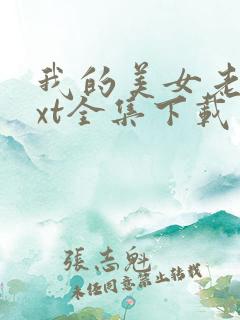 我的美女老
xt全集下载
張志魁
未经同意禁止转载